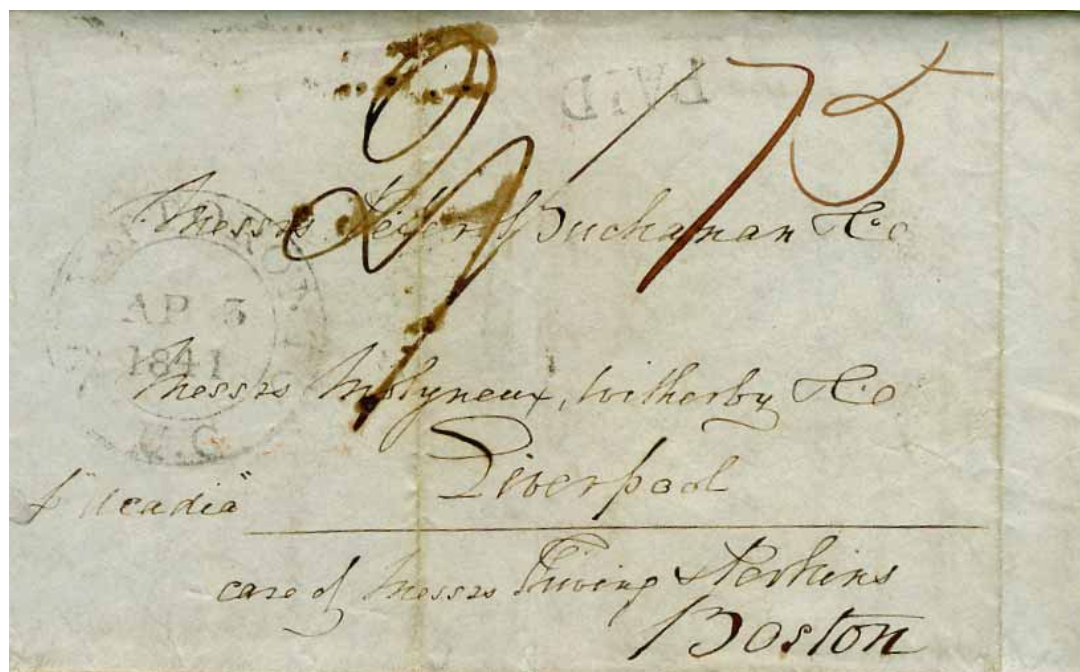 PAID
75
Messrs. Peter Buchanan & Co
AP 5
1841
U.C.
Messrs Molyneux, Witherby & Co
Liverpool
p "Acadia"
care of Messrs Thwing & Perkins
Boston